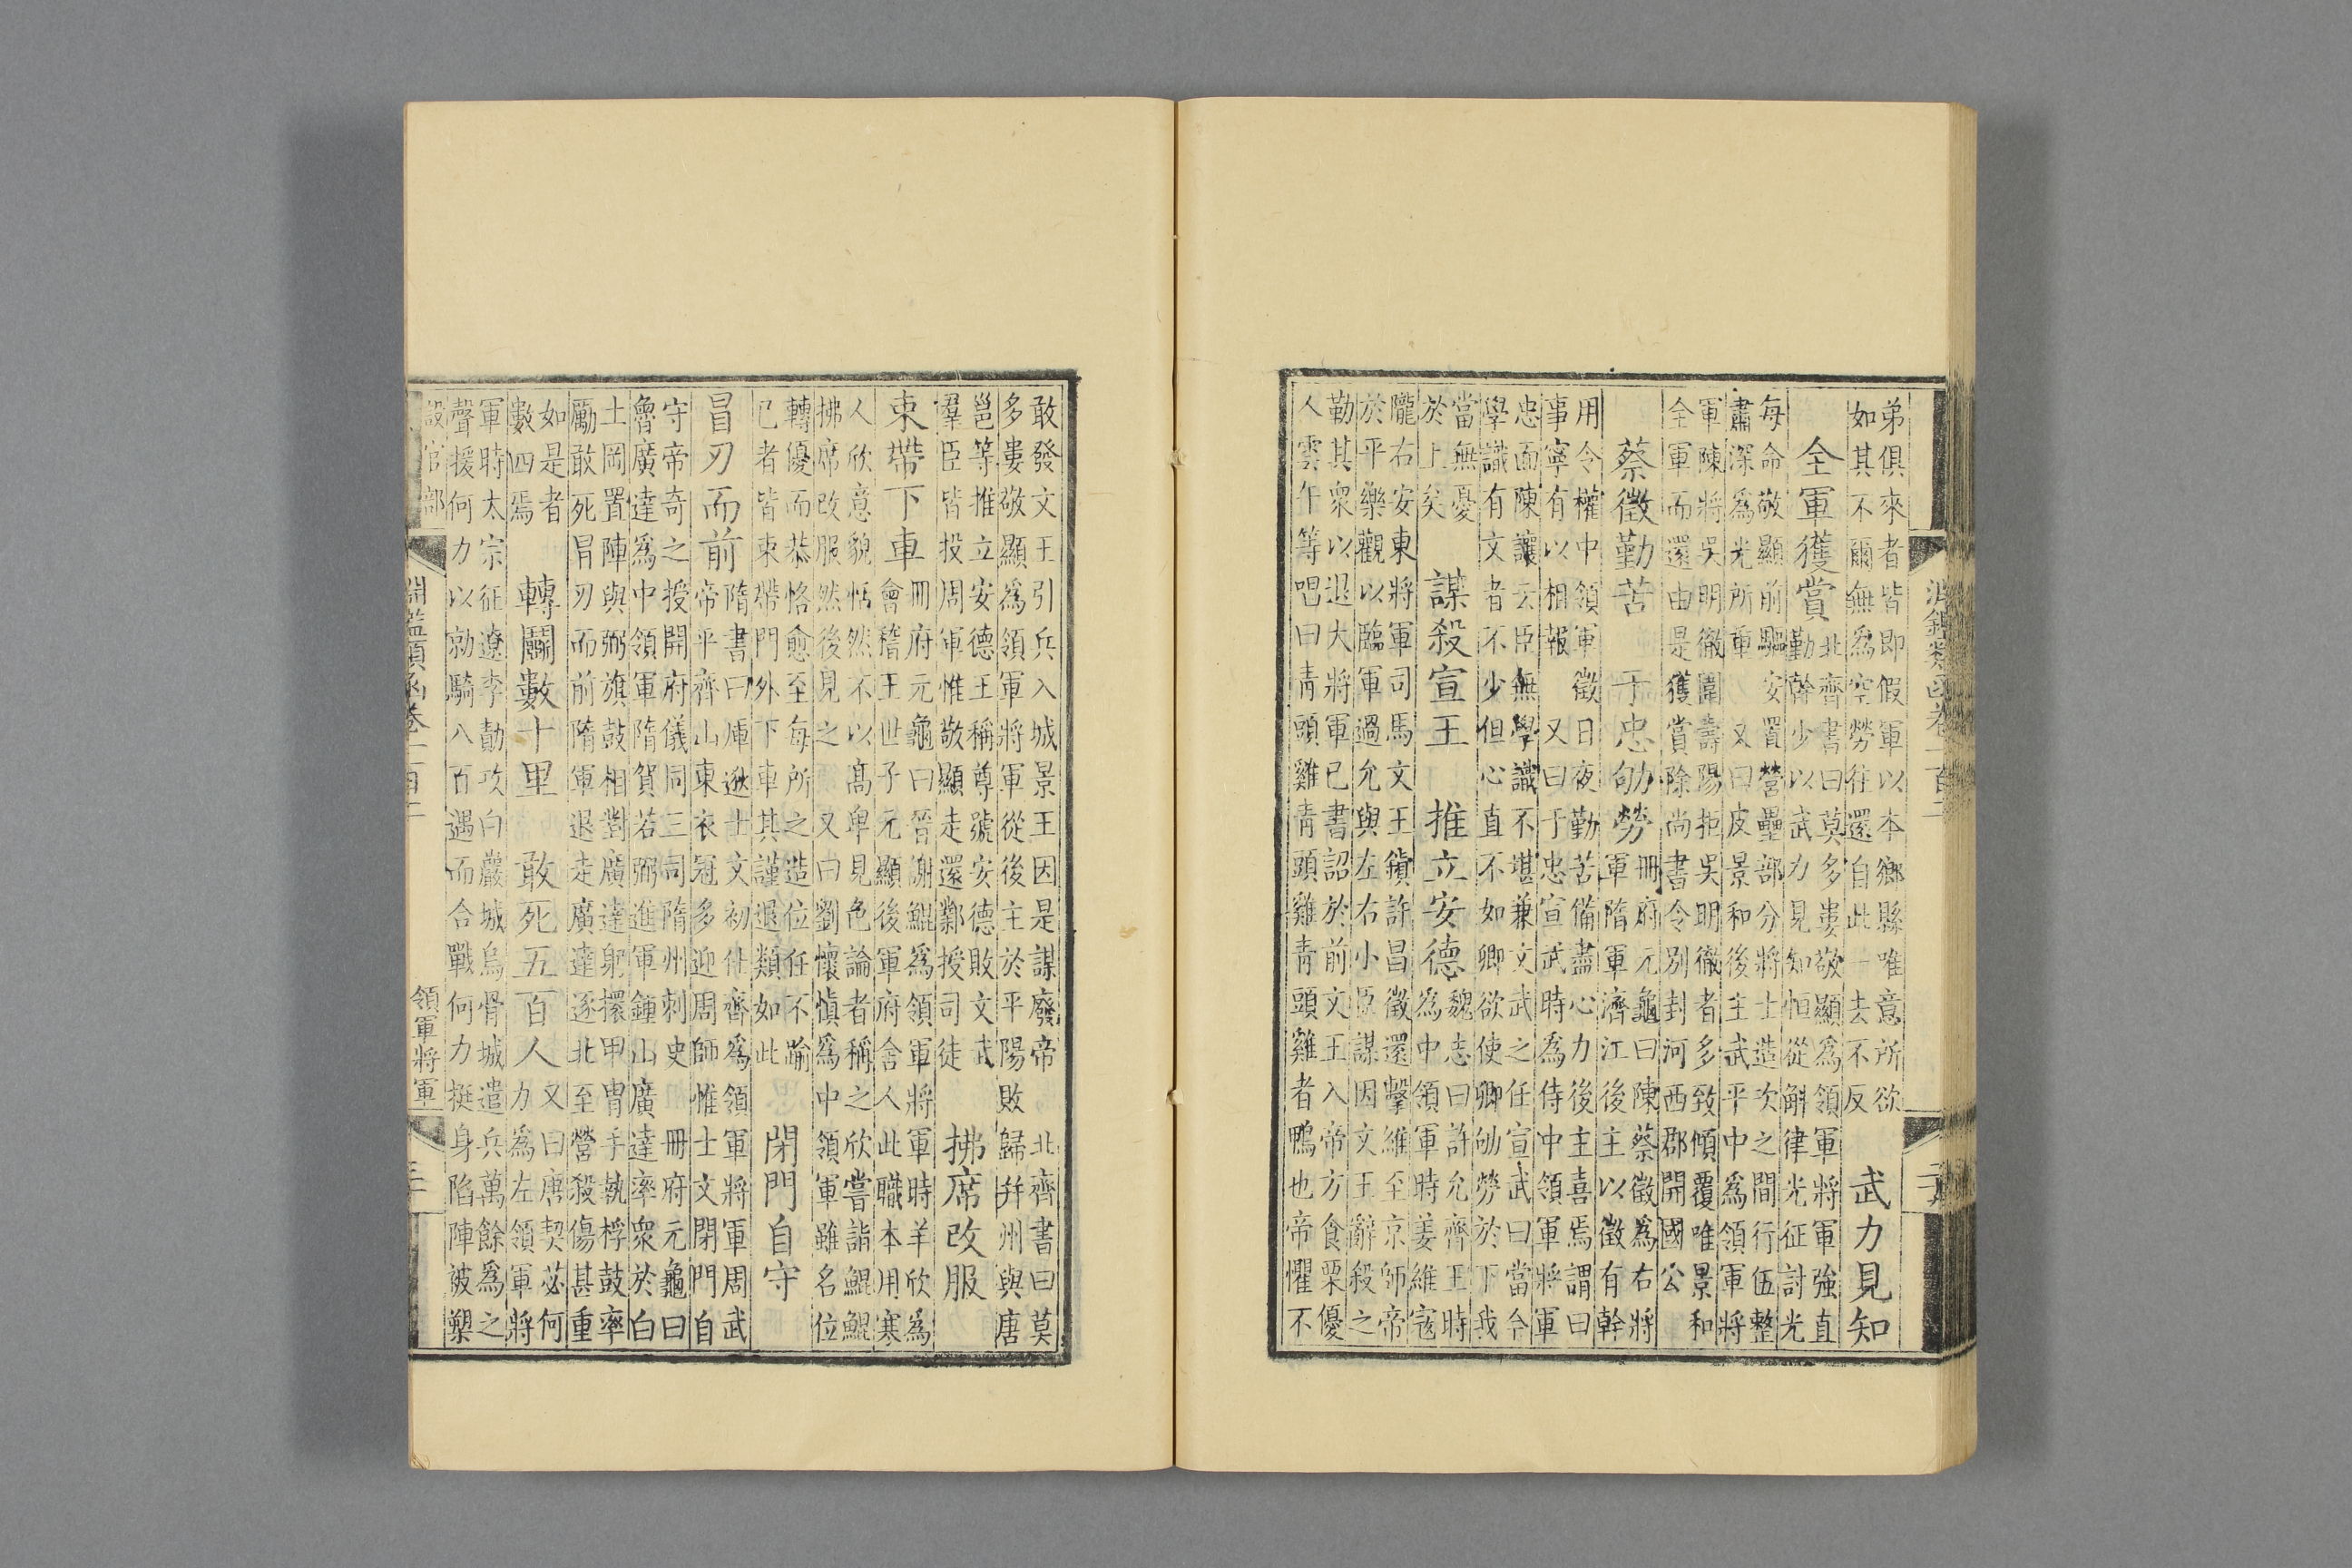 淵鑑類函卷一百二
弟俱來者皆即假軍以本鄉縣唯意所欲
如其不爾無爲空勞往還自此一去不反
武力見知
全軍獲賞
北齊書曰莫多婁敬顯爲領軍將軍強直
勤幹少以武力見知恒從斛律光征討光
每命敬顯前驅安置營壘部分將士造次之間行伍整
肅深爲光所重 又曰皮景和後主武平中爲領軍將
軍陳將吳明徹圍壽陽拒吳明徹者多致傾覆唯景和
全軍而還由是獲賞除尚書令別封河西郡開國公
蔡徵勤苦 于忠劬勞
冊府元龜曰陳蔡徵爲右將
軍隋軍濟江後主以徵有幹
用令權中領軍徵日夜勤苦備盡心力後主喜焉謂曰
事寧有以相報 又曰于忠宣武時爲侍中領軍將軍
忠面陳讓云臣無學識不堪兼文武之任宣武曰當今
學識有文者不少但心直不如卿欲使卿劬勞於下我
當無憂
於上矣
謀殺宣王 推立安德
魏志曰許允齊王時
爲中領軍時姜維寇
隴右安東將軍司馬文王鎮許昌徵還擊維至京師帝
於平樂觀以臨軍過允與左右小臣謀因文王辭殺之
勒其衆以退大將軍已書詔於前文王入帝方食栗優
人雲午等唱曰青頭雞青頭雞青頭雞者鴨也帝懼不
敢發文王引兵入城景王因是謀廢帝 北齊書曰莫
多婁敬顯爲領軍將軍從後主於平陽敗歸幷州與唐
邕等推立安德王稱尊號安德敗文武
羣臣皆投周軍惟敬顯走還鄴授司徒
拂席改服
束帶下車
冊府元龜曰晉謝鯤爲領軍將軍時羊欣爲
會稽王世子元顯後軍府舍人此職本用寒
人欣意貌恬然不以高卑見色論者稱之欣嘗詣鯤鯤
拂席改服然後見之 又曰劉懷愼爲中領軍雖名位
轉優而恭恪愈至每所之造位任不踰
已者皆束帶門外下車其謹退類如此
閉門自守
冒刃而前
隋書曰厙逖士文初仕齊爲領軍將軍周武
帝平齊山東衣冠多迎周師惟士文閉門自
守帝奇之授開府儀同三司隋州刺史 冊府元龜曰
魯廣達爲中領軍隋賀若弼進軍鍾山廣達率衆於白
土岡置陣與弼旗鼓相對廣達躬擐甲冑手執桴鼓率
勵敢死冒刃而前隋軍退走廣達逐北至營殺傷甚重
如是者
數四焉
轉鬭數十里 敢死五百人
又曰唐契苾何
力爲左領軍將
軍時太宗征遼李勣攻白巖城烏骨城遣兵萬餘爲之
聲援何力以勍騎八百遇而合戰何力挺身陷陣被槊
設官部
淵鑑類函卷一百二
領軍將軍